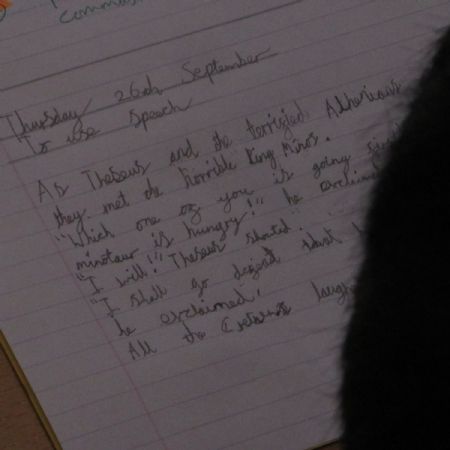 Comma
Thursday 26th September
To use speech
As Theseus and the terrified Athenious
they met the horrible King Minos.
"Which one of you is going
minotaur is hungry!" he exclaime
"I will!" Theseus shouted.
"I shall go defeat that
he exclaimed.
All the Cretans laughe